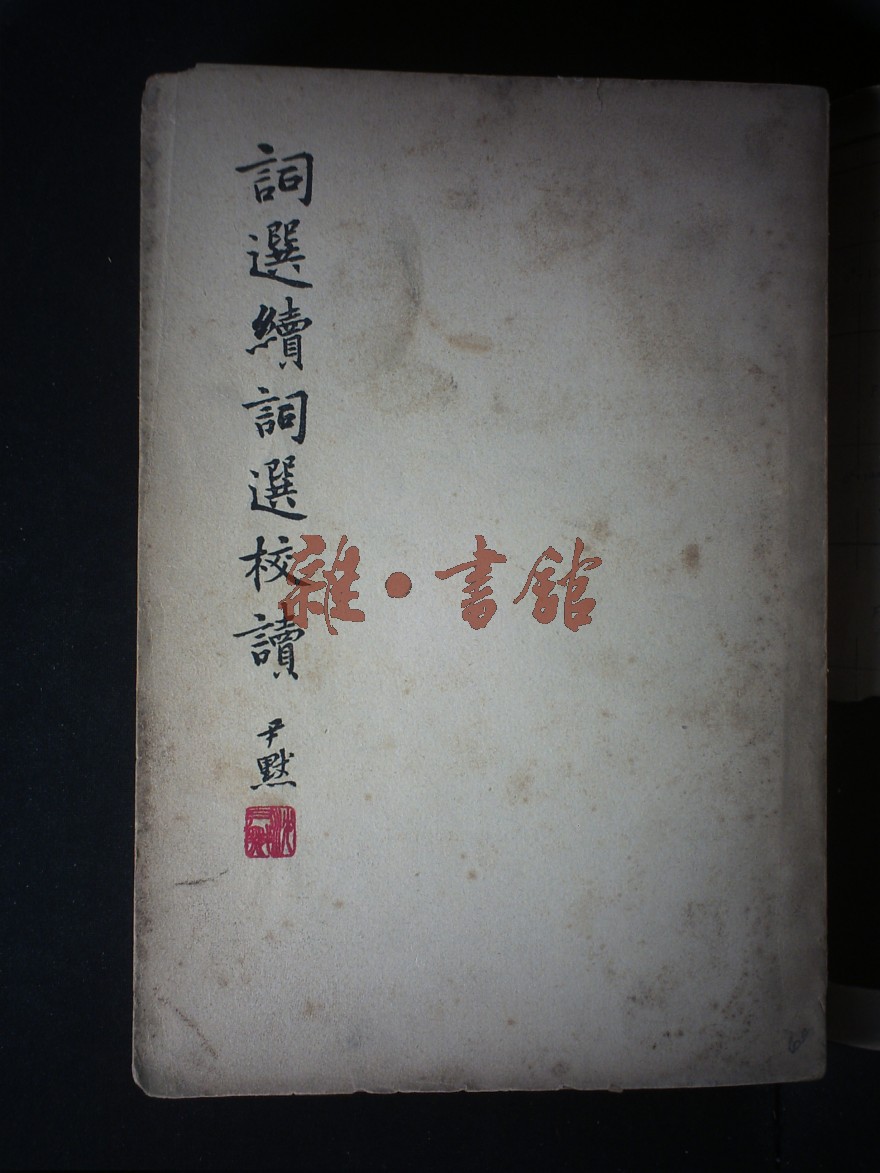 詞選續詞選校讀
尹默
雜·書館